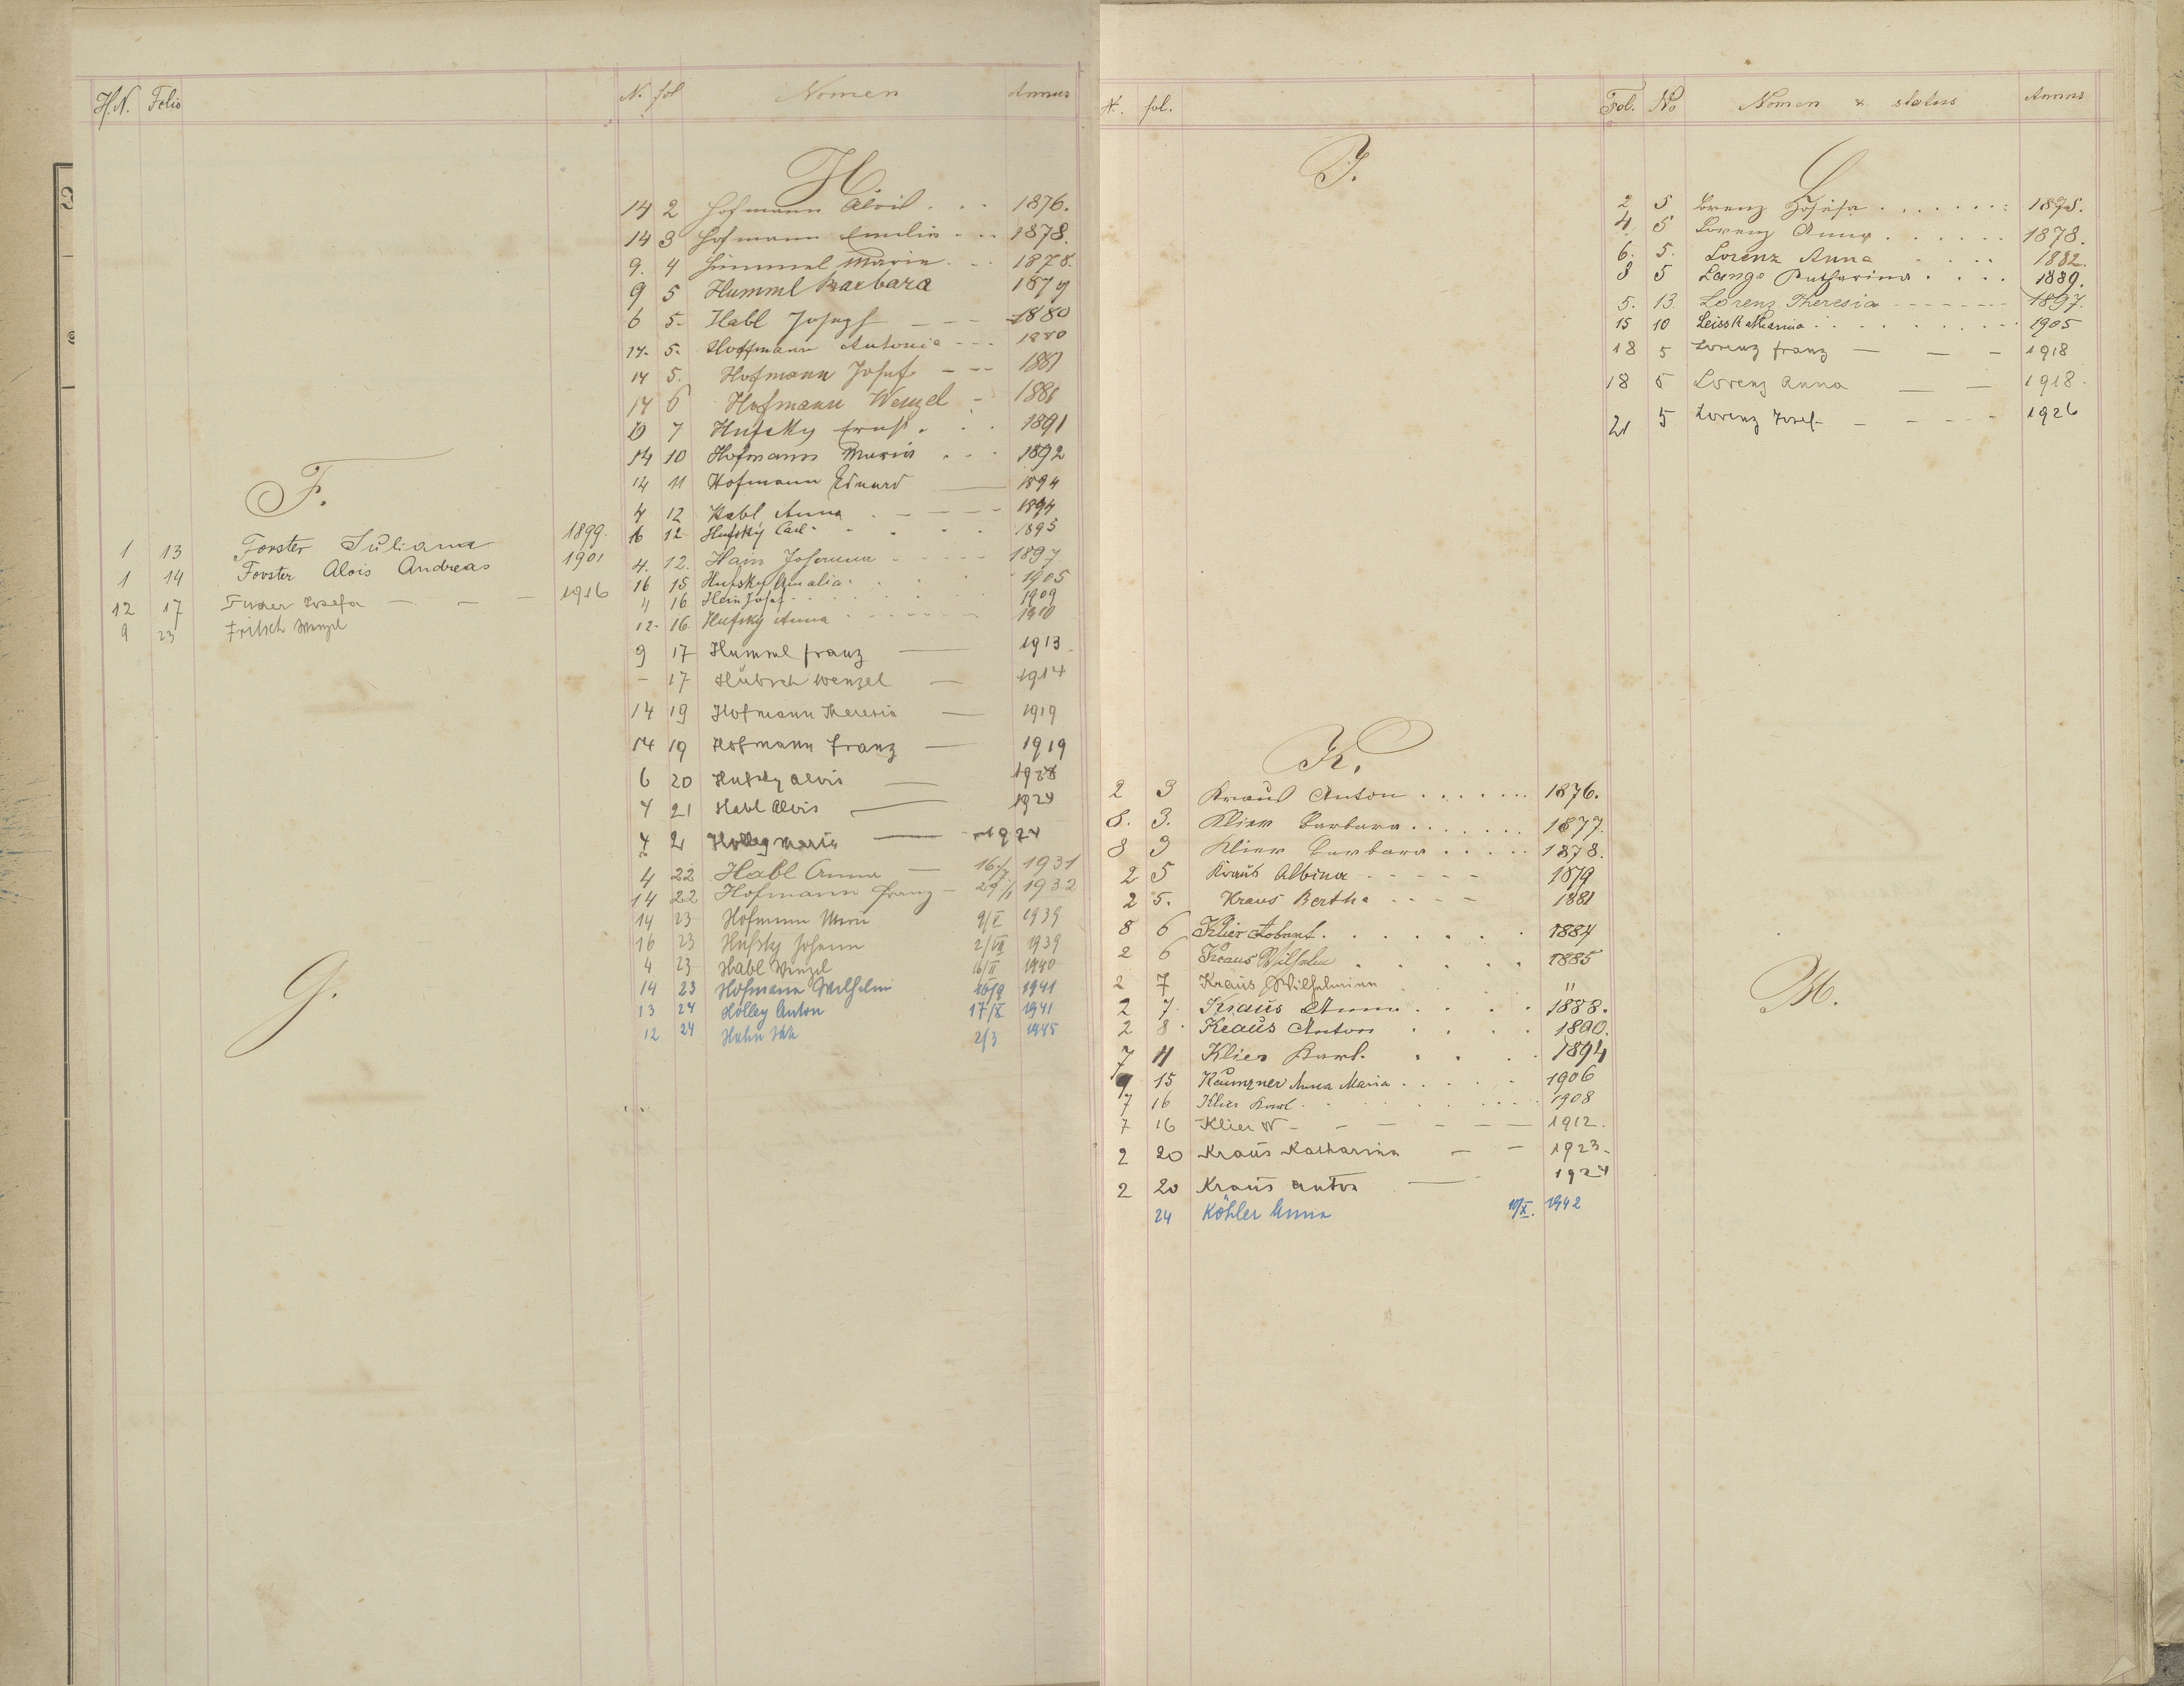 H.N. Folio
F.
1 13 Forster Juliana 1899.
1 14 Forster Alois Andreas 1901
12 17 Josefa — — — 1916
9 23 Fritsch Wenzel
G.
N. fol Nomen Annus
H
14 2 Hofmann Alois . . . 1876.
14 3 Hofmann Emilia . . . 1878.
9. 4 Himmel Maria . . . 1878.
9 5 Humml Barbara 1879
6 5- Habl Joseph — — — 1880
14. 5. Hoffmann Antonia - - - 1880
14 5. Hofmann Josef - - - 1881
14 6 Hofmann Wenzel - 1886
7 Hufsky Ernst . . . 1891
14 10 Hofmann Maria . . . 1892
14 11 Hofmann Eduard — 1894
4 12 Habl Anna . - - - - 1894
16 12 Hufský Carl - - . . . 1895
4. 12. Hain Johanna - - - - - 1897
16 15 Hufsky Amalia . . . . 1905
" 16 Hein Josef . . . . . 1909
12- 16. Hufský Anna - - - - - - 1910
9 17 Humml Franz — 1913.
- 17 Hübsch Wenzel — 1914
14 19 Hofmann Theresia — 1919
14 19 Hofmann Franz — 1919
6 20 Hufsky Alois —
4 21 Habl Alois — 1924
4 21 Maria — 1924
4 22 Habl Anna — 16./7. 1931
14 22 Hofmann Franz - 29/1 1932
14 23 Hofmann Marie 9/X 1939
16 23 Hufsky Johann 2/VII 1939
4 23 Habl Wenzel 16/II 1940
14 23 Hofmann Wilhelm 16/9 1941
13 24 Holley Anton 17/X 1941
12 24 Hahn 2/3 1945
N. fol.
I.
K.
2 3 Kraus Anton . . . . . . 1876.
8. 3. Klier Barbara . . . . . . . 1877.
8 3 Klier Barbara . . . . . 1878.
2 5 Kraus Albina - - - - - 1879
2 5. Kraus Bertha - - - - 1881
8 6 Klier . . . . . . . 1884
2 6 Kraus Wilhelm . . . . . 1885
2 7 Kraus Wilhelmine . . . "
2 7. Kraus Anna . . . . 1888.
2 8. Kraus Anton . . . . 1890.
7 11 Klier Karl. . . . . 1894
9 15 Kaunzner Anna Maria . . . . . 1906
7 16 Klier Karl . . . . . . . . . 1908
7 16 Klier W — — — — — — 1912.
2 20 Kraus Katharina — — 1923-
2 20 Kraus Anton — 1924
24 Köhler Anna 10/X. 1942
Fol. No Nomen & status Annus
L
2 5 Lorenz Josefa . . . . . . : 1878.
4 5 Lorenz Anna . . . . . . 1878.
6. 5. Lorenz Anna - . . . . 1882.
8 5 Lange Katharina . . . . 1889.
5. 13. Lorenz Theresia - - - - - - - 1897.
15 10 Leiss Katharina . . . . . . . . . 1905
18 5 Lorenz Franz — — — 1918
18 5 Lorenz Anna — — 1918-
21 5 Lorenz Josef - — - - - - 1926
M.